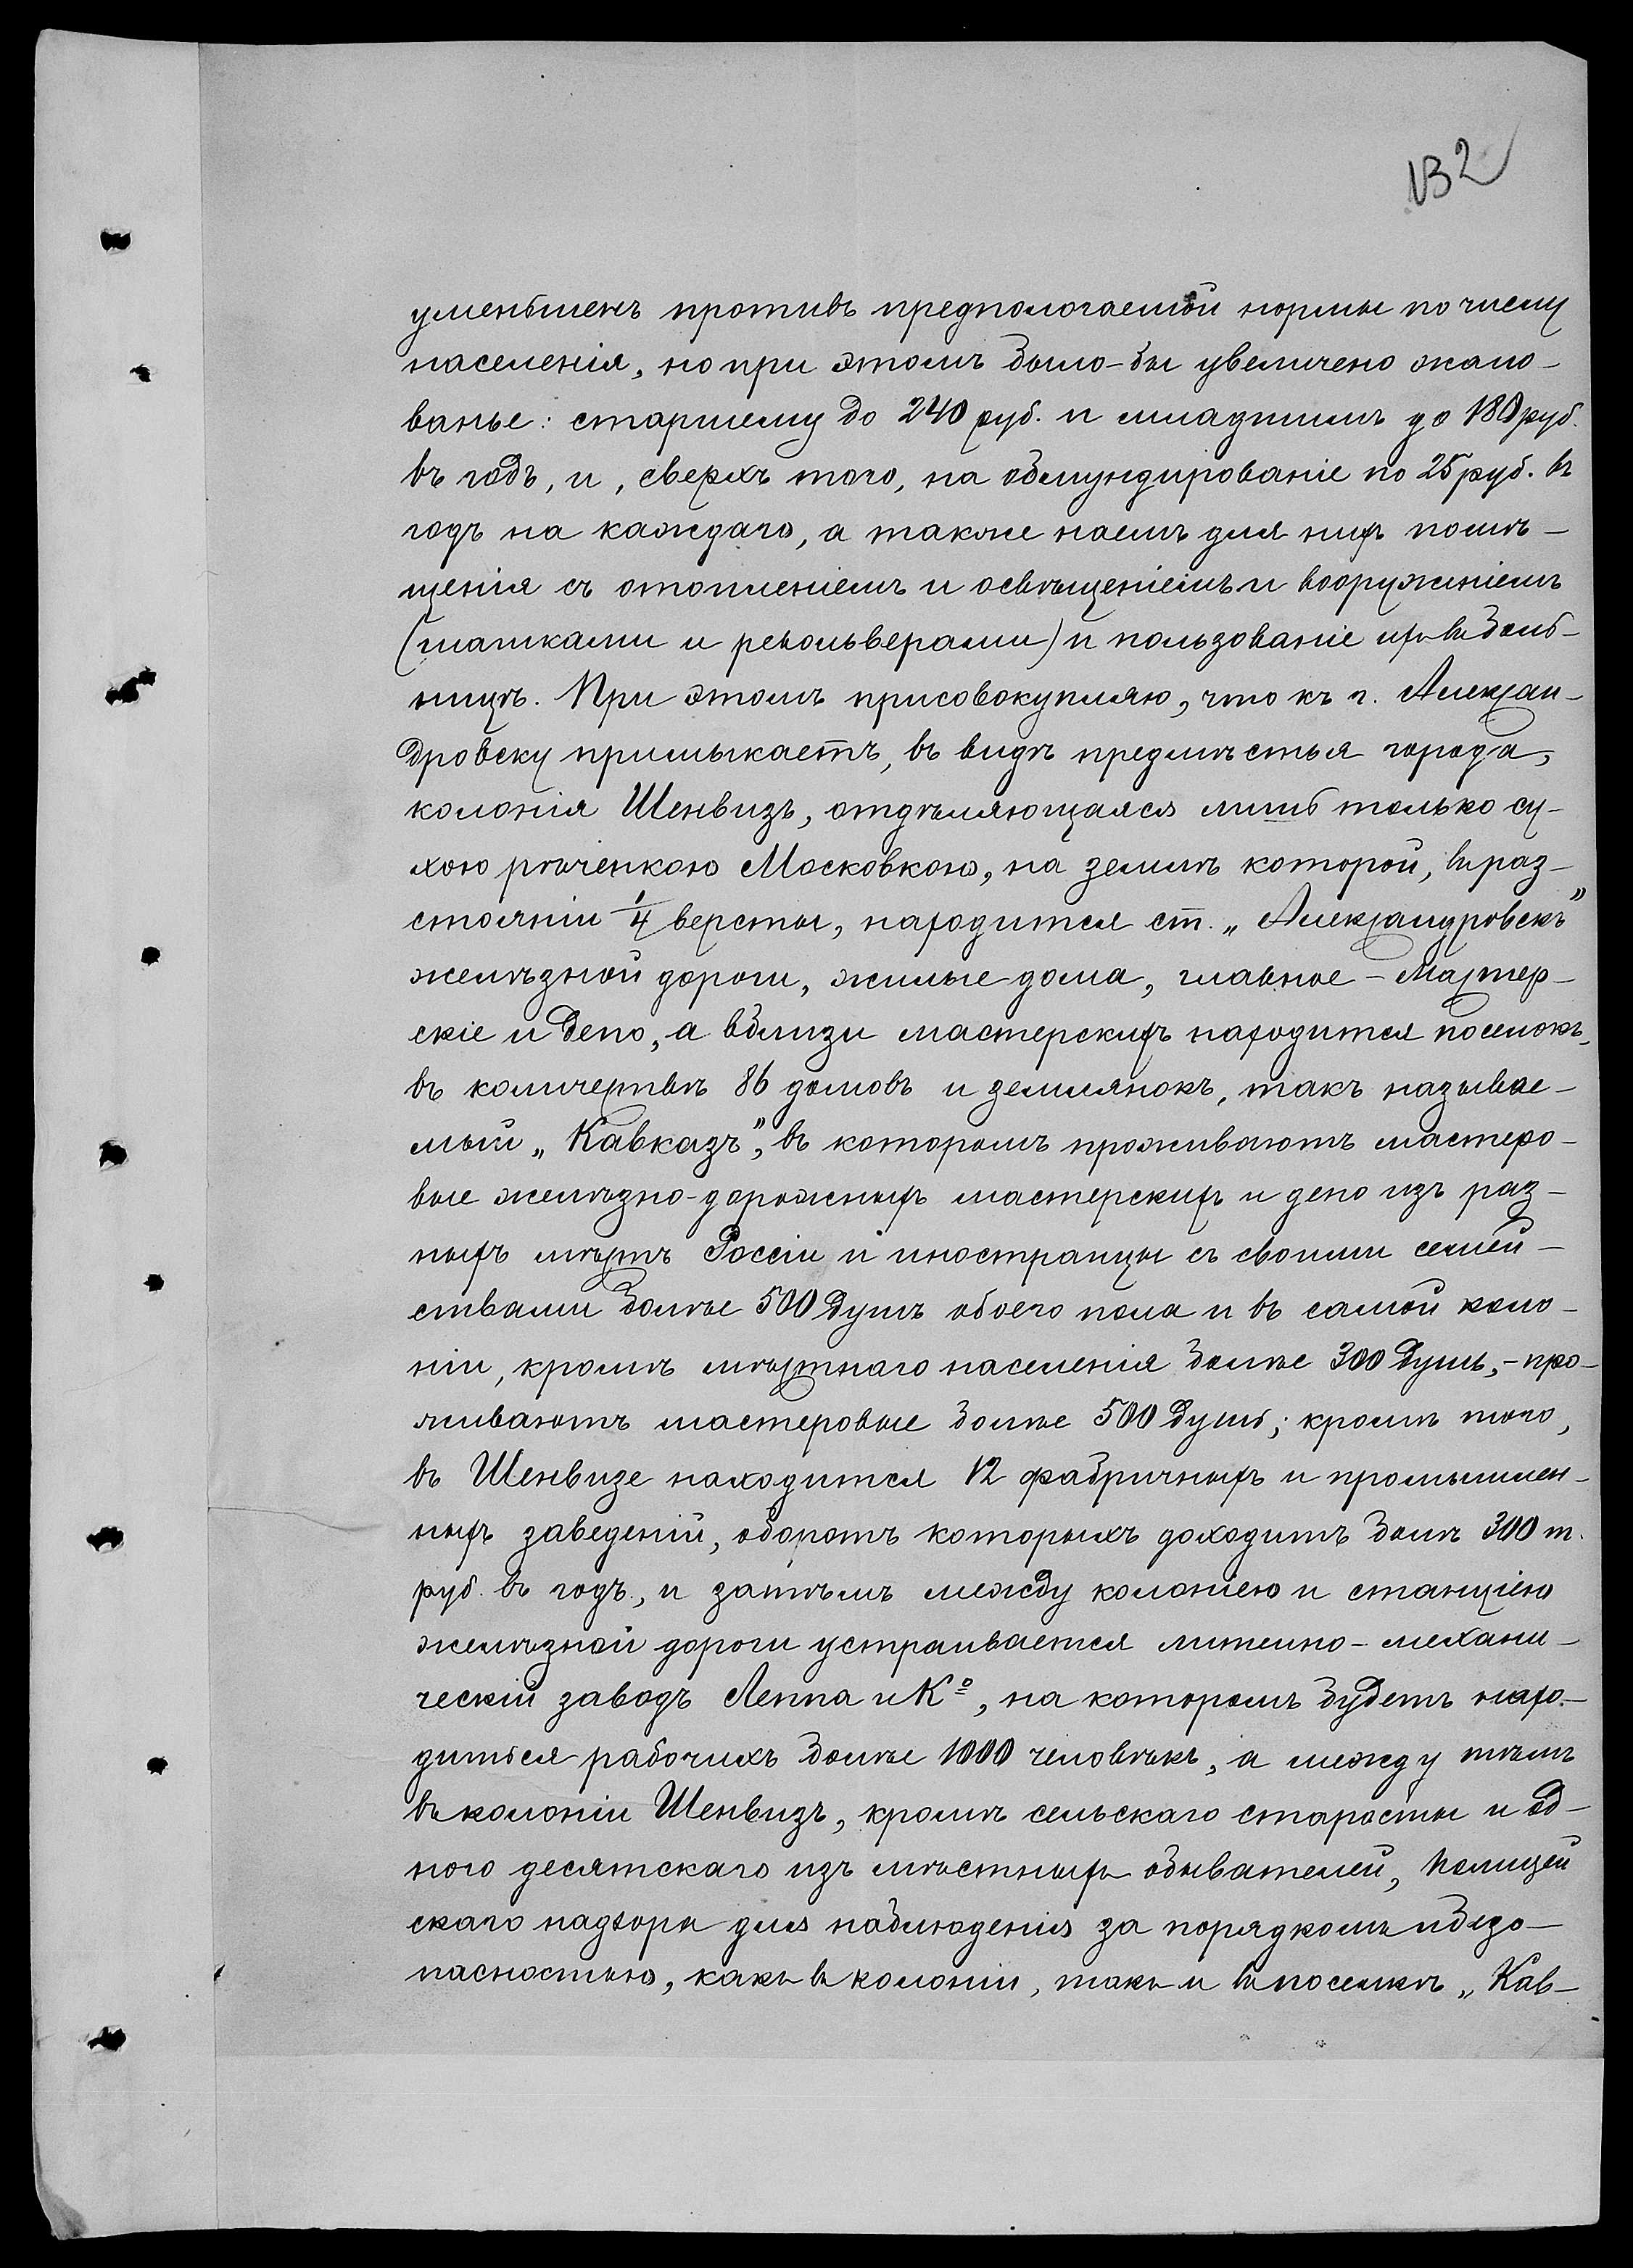 132
уменьшенъ противъ предпологаемой нормы по числу
населенія, но при этомъ было-бы увеличено жало-
ванье: старшему до 240 руб. и младшимъ до 180 руб.
въ годъ, и, сверхъ того, на обмундированіе по 25 руб. въ
годъ на каждаго, а также наемъ для нихъ помѣ-
щенія съ отопленіемъ и освѣщеніемъ и вооруженіемъ
(шашками и револьверами) и пользованіе ихъ въ боль-
ницѣ. При этомъ присовокупляю, что къ г. Алексан-
дровску примыкаетъ, въ видѣ предмѣстья города,
колонія Шенвизъ, отдѣляющаяся лишь только су-
хою рѣченкою Московкою, на землѣ которой, въ раз-
стояніи 1/4 версты, находится ст. „Александровскъ"
желѣзной дороги, жилые дома, главное - Мастер-
скіе и депо, а вблизи мастерскихъ находится поселокъ,
въ количествѣ 86 домовъ и землянокъ, такъ называе-
мый „Кавказъ", въ которомъ проживаютъ мастеро-
вые желѣзно-дорожныхъ мастерскихъ и депо изъ раз-
ныхъ мѣстъ Россіи и иностранцы съ своими семей-
ствами болѣе 500 душъ обоего пола и въ самой коло-
ніи, кромѣ мѣстнаго населенія болѣе 300 душъ, - про-
живаютъ мастеровые болѣе 500 душъ; кромѣ того,
въ Шенвизе находится 12 фабричныхъ и промышлен-
ныхъ заведеній, оборотъ которыхъ доходитъ болѣ 300 т.
руб. въ годъ., и затѣмъ между колоніею и станціею
желѣзной дороги устраивается литейно-механи-
ческій заводъ Леппа и Кº, на которомъ будетъ нахо-
диться рабочихъ болѣе 1000 человѣкъ, а между тѣмъ
въ колоніи Шенвизъ, кромѣ сельскаго старосты и од-
ного десятскаго изъ мѣстныхъ обывателей, полицей
скаго надзора для наблюденія за порядкомъ и безо-
пасностью, какъ въ колоніи, такъ и въ поселкѣ „Кав-